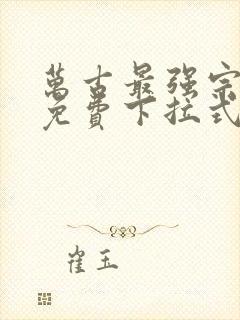 萬古最强宗
免費下拉式
崔玉